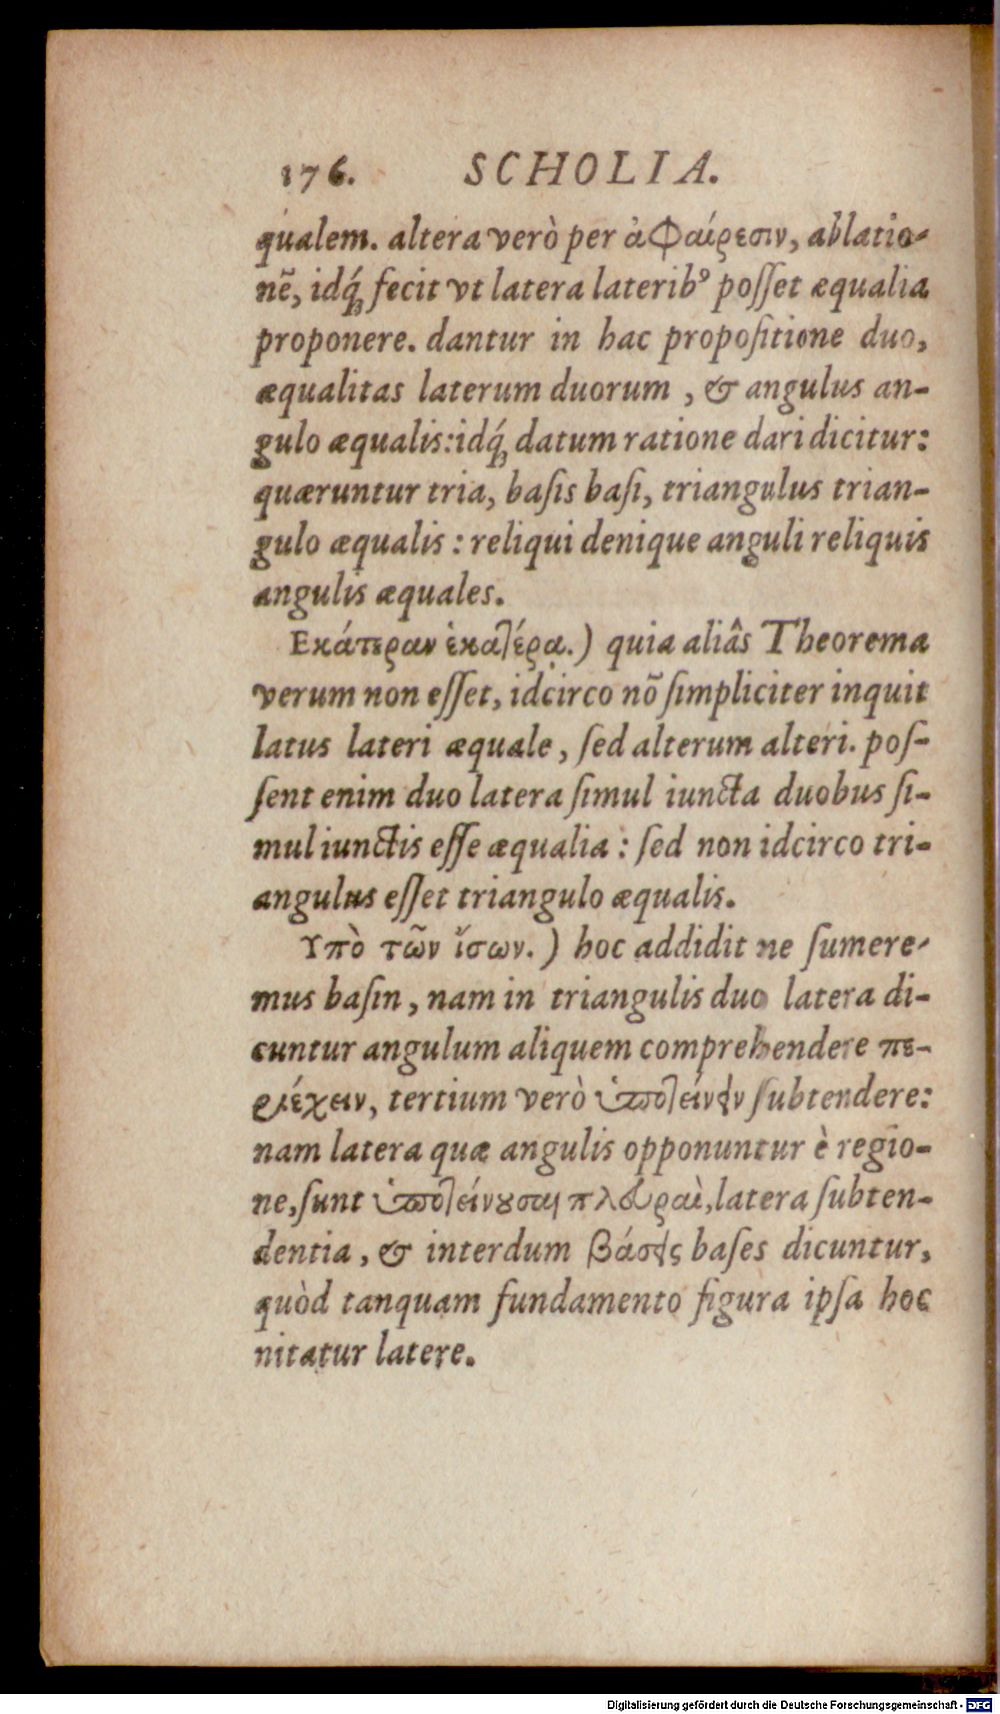 176. SCHOLIA.
qualem. altera verò per ἀφαίρεσιν, ablatio-
nẽ, idq́; fecit vt latera laterib⁹ poſſet æqualia
proponere. dantur in hac propoſitione duo,
æqualitas laterum duorum , & angulus an-
gulo æqualis: idq́; datum ratione dari dicitur:
quæruntur tria, baſis baſi, triangulus trian-
gulo æqualis : reliqui denique anguli reliquis
angulis æquales.
Εκάτεραν ἑκατέρᾳ.) quia aliâs Theorema
verum non eſſet, idcirco nõ ſimpliciter inquit
latus lateri æquale , ſed alterum alteri. poſ-
ſent enim duo latera ſimul iuncta duobus ſi-
mul iunctis eſſe æqualia : ſed non idcirco tri-
angulus eſſet triangulo æqualis.
Υπὸ τῶν ἴσων.) hoc addidit ne ſumere-
mus baſin , nam in triangulis duo latera di-
cuntur angulum aliquem comprehendere πε-
ριέχειν, tertium verò ὑποτείνειν ſubtendere:
nam latera quæ angulis opponuntur è regio-
ne, ſunt ὑποτείνουσαι πλευραὶ, latera ſubten-
dentia , & interdum βάσεις baſes dicuntur,
quòd tanquam fundamento figura ipſa hoc
nitatur latere.
Digitalisierung gefördert durch die Deutsche Forschungsgemeinschaft - DFG